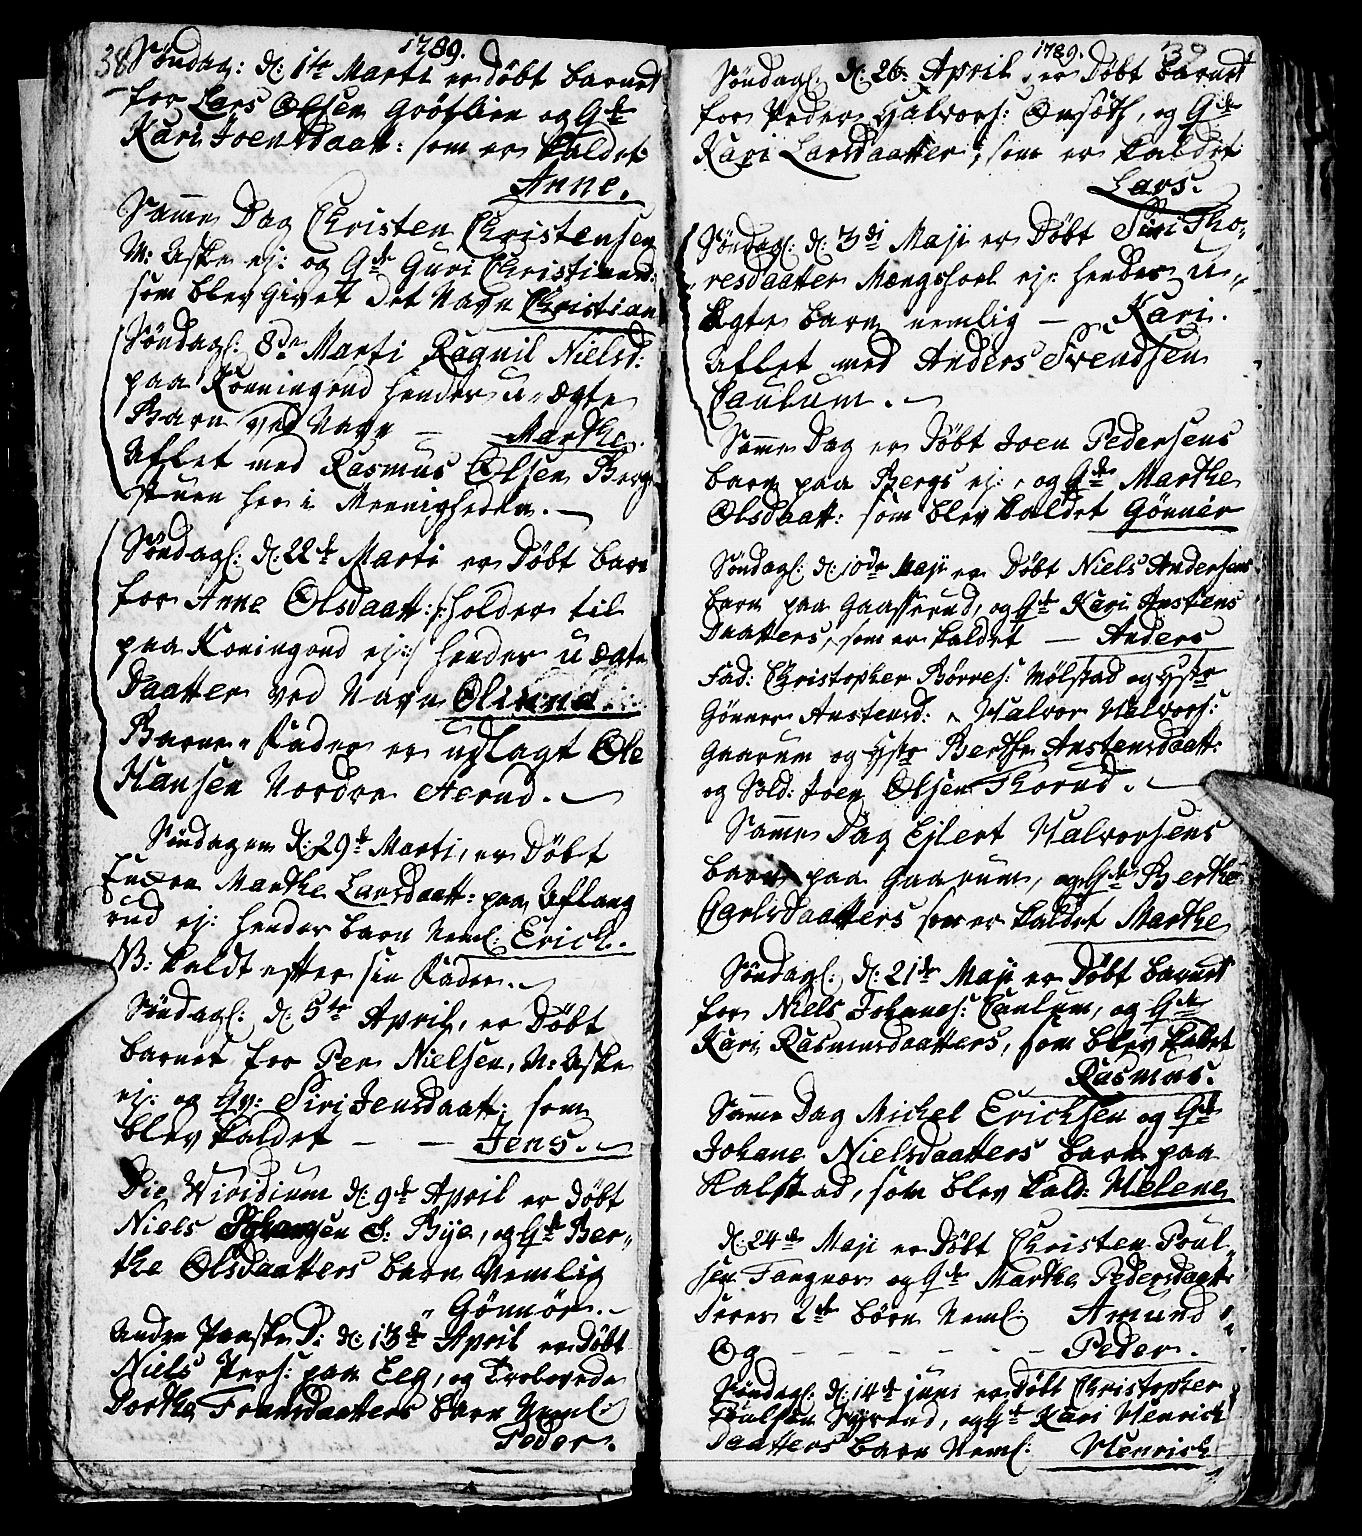 38
1789.
Søndag: d: 1te Marti er Døbt Barnet
for Lars Olsen Grøtlien og Gde
Kari Joensdaatt: som er kaldet
Anne.
Samme Dag Christen Christensen
N: Aske ej: og Gde Guri Christiansd:
som blev Givet det Navn Christian
Søndagl: 8de Marti Ragnil Nielsd:
paa Konningrud hendes u-ægte
Barn ved Navn — Marthe.
Aflet med Rasmus Olsen Berg
stuen her i Menigheden. —
Søndagl: d: 22de Marti er Døbt Barn
for Anne Olsdaatt: /: holder til
paa Koningrud ej: / hendes u ægte
Daatter ved Navn
Barne-Fader er udlagt Ole
Hansen Nordre
Søndagen d: 29de Marti, er Døbt
Marthe Larsdaatt: paa Aflang
rud ej: hendes barn Neml: Erich.
NB: kaldt efter sin Fader.
Søndagl: d: 5te April, er Døbt
barnet for Per Nielsen, N: Aske
ej: og Gv: Siri Jensdaatt; som
blev kaldet — — Jens. —
Die Viridium d: 9de April er Døbt
Niels S: Bye, og Gde Ber-
the Olsdaatters barn Nemlig
Gønnør. -
Anden Paaske D: d: 13de April er Døbt
Niels Pers: paa Elg, og
Dorthe Fransdaatters barn Neml:
Peder.
1789.
39
Søndagl: d: 26: April, er Døbt barnet
for Peder Halvors: Onsøth, og Gde
Kari Larsdaatter, som er kaldet
Lars.
Søndagl: d: 3di Maji er Døbt Siri Tho-
resdaatter Mængshoel ej: hendes u-
Ægte barn nemlig — Kari.
Aflet med Anders Svendsen
Caulum. —
Samme Dag er Døbt Joen Pedersens
barn paa Bergs ej: og Gde Marthe
Olsdaatt: som blev kaldet Gønner
Søndagl: d: 10de Maji er Døbt Niels Andersens
barn paa Gaasserud, og Gde Kari Anstens
Daatters, som er kaldet — Anders
Fad: Christopher Børres: Mølstad og Hstr
Gønner Anstensd: Halvor Halvors:
Gaarum og Hstr Berthe Anstensdaatt:
og Sold: Joen Olsen Thorud. —
Samme Dag Ejlert Halvorsens
barn paa Gaarum, og Gde Berthe
Carlsdaatters som er kaldet Marthe
Søndagl: d: 21de Maji er Døbt barnet
for Niels Johanes: Caulum, og Gde
Kari Rasmusdaatters, som blev kaldet
Rasmus.
Samme Dag Michel Erichsen og Gde
Johane Nielsdaatters barn paa
Kalstad, som blev kald: Helene
d: 24de Maji er Døbt Christen Poul-
sen Fangnæs og Gde Marthe Pedersdaatt:
Deres 2de børn Neml: Amund
Og - - - - - Peder.
Søndagl: d: 14de juni er Døbt Christopher
Poulsen og Gde Kari Henrich
Daatters barn Neml: Henrich